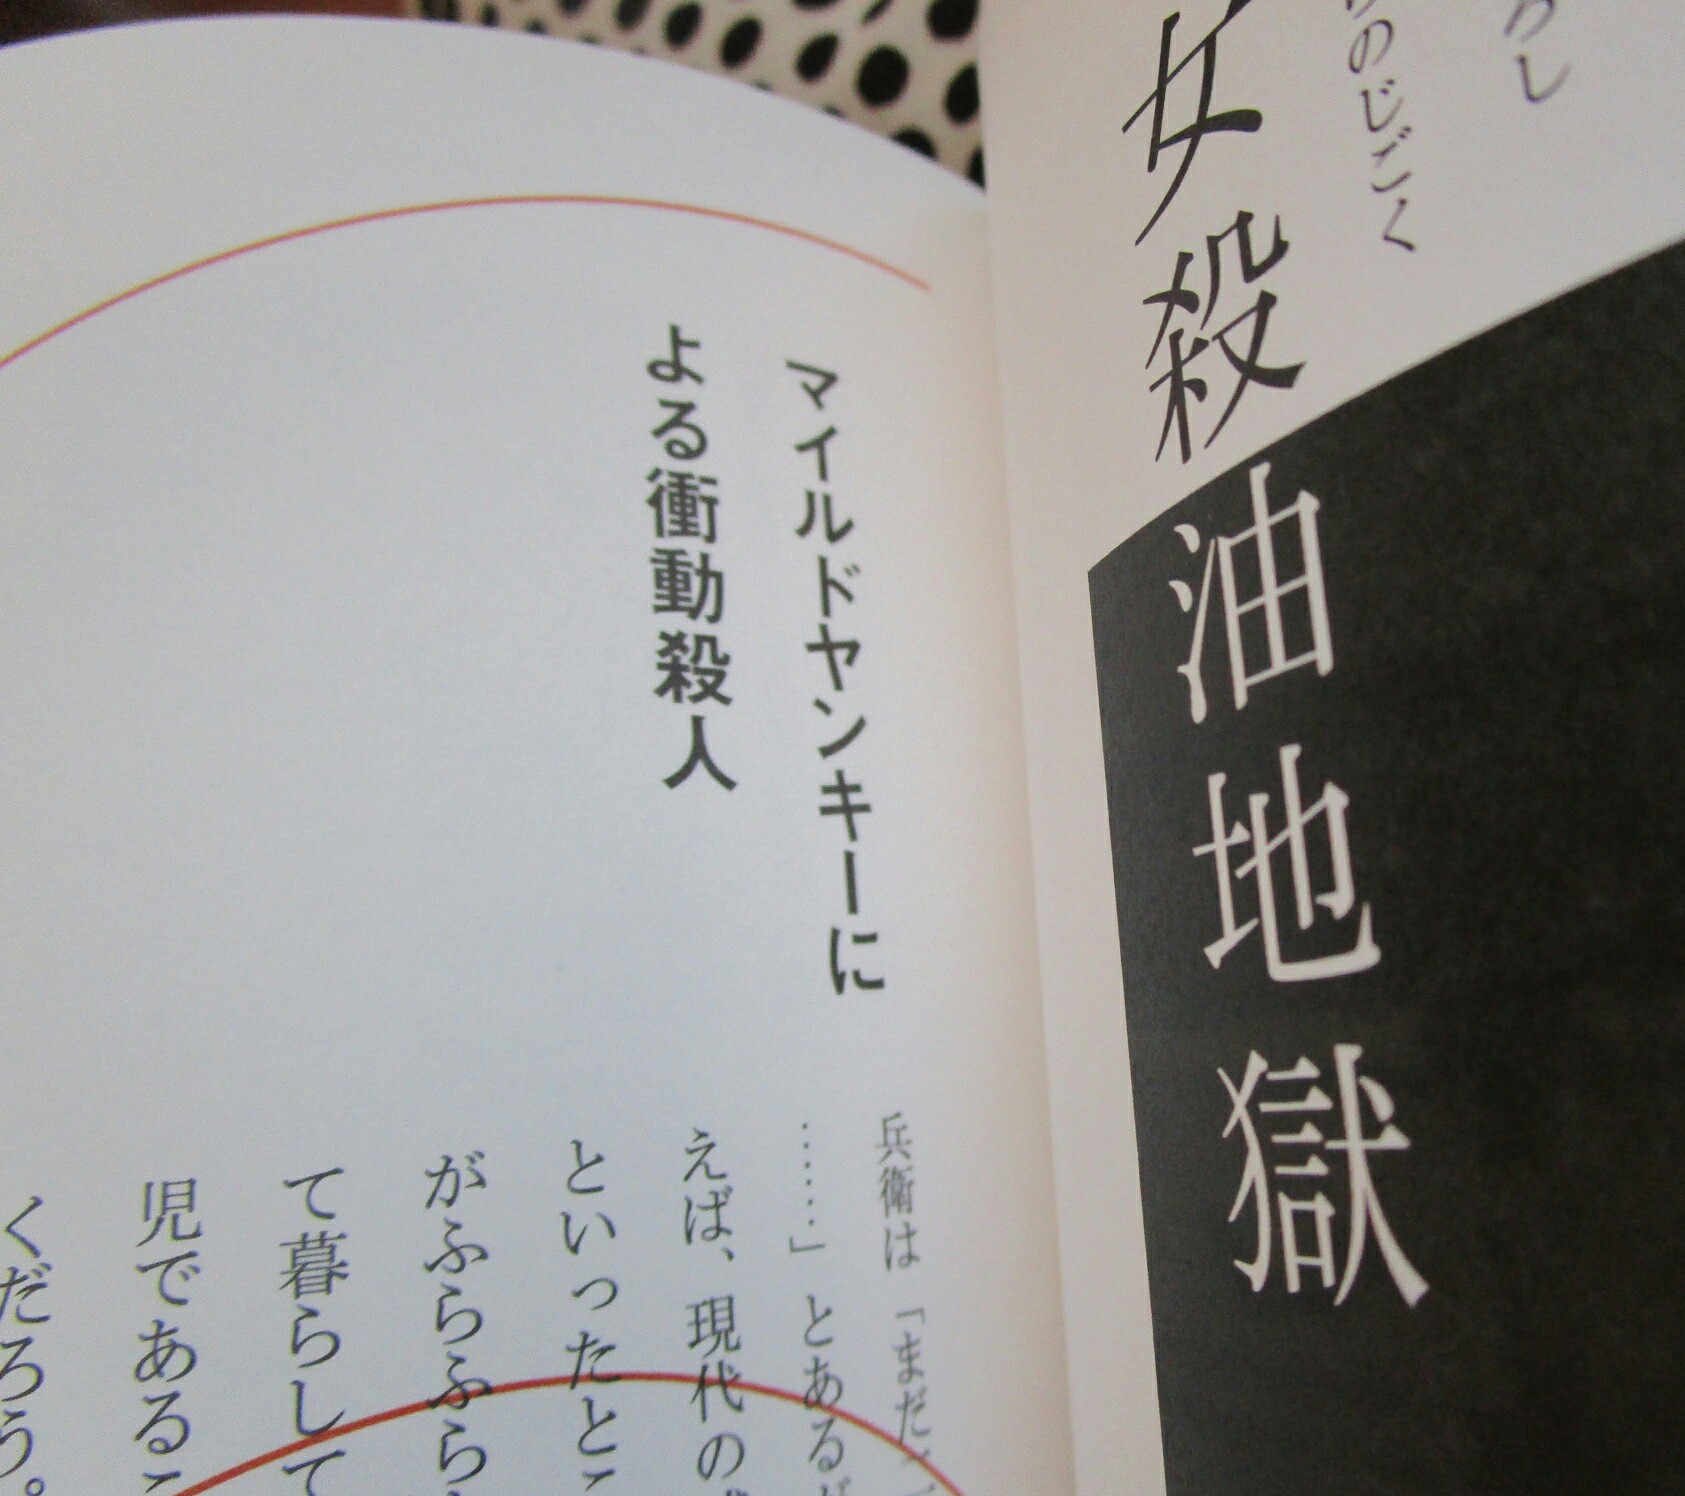 ろし
のじごく
女殺油地獄
マイルドヤンキーに
よる衝動殺人
兵衛は「まだ
……」とあるが
えば、現代の
といったとこ
がふらふら
て暮らして
児であるこ
くだろう。